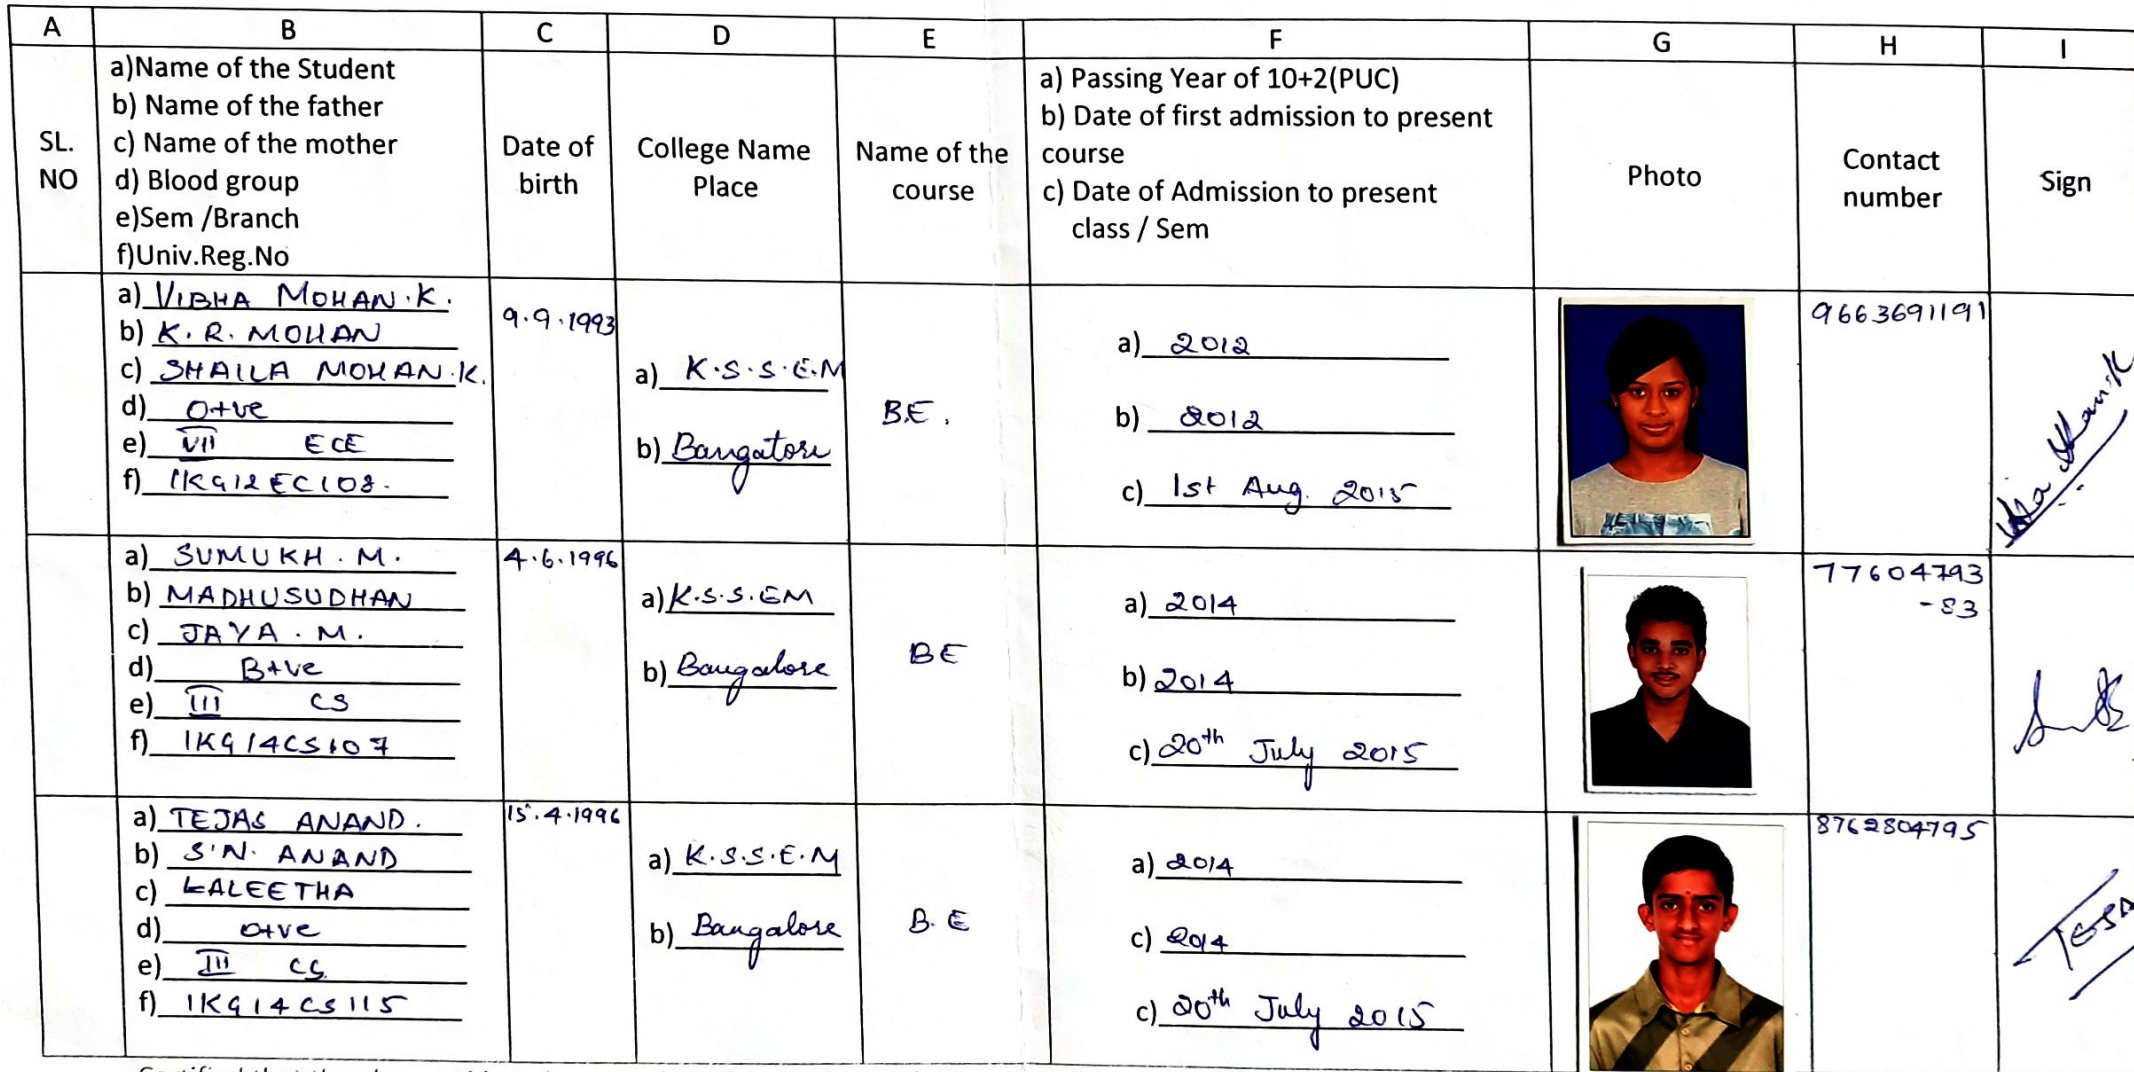 A B C D E F G H I
SL.
NO
a)Name of the Student
b) Name of the father
c) Name of the mother
d) Blood group
e)Sem /Branch
f)Univ.Reg.No
Date of
birth
College Name
Place
Name of the
course
a) Passing Year of 10+2(PUC)
b) Date of first admission to present
course
c) Date of Admission to present
class / Sem
Photo
Contact
number
Sign
a) VIBHA MOHAN.K.
b) K.R. MOHAN
c) SHAILA MOHAN.K.
d) O+ve
e) VII ECE
f) 1KG12EC108.
9.9.1993
a) K.S.S.E.M
b) Bangalore
B.E.
a) 2012
b) 2012
c) 1st Aug. 2015
9663691191
a) SUMUKH.M.
b) MADHUSUDHAN
c) JAYA.M.
d) B+ve
e) III CS
f) 1KG14CS107
4.6.1996
a) K.S.S.EM
b) Bangalore
BE
a) 2014
b) 2014
c) 20th July 2015
77604793
-83
a) TEJAS ANAND.
b) S.N. ANAND
c) LALEETHA
d) O+ve
e) III CS
f) 1KG14CS115
15.4.1996
a) K.S.S.E.M
b) Bangalore
B.E
a) 2014
c) 2014
c) 20th July 2015
8762804795